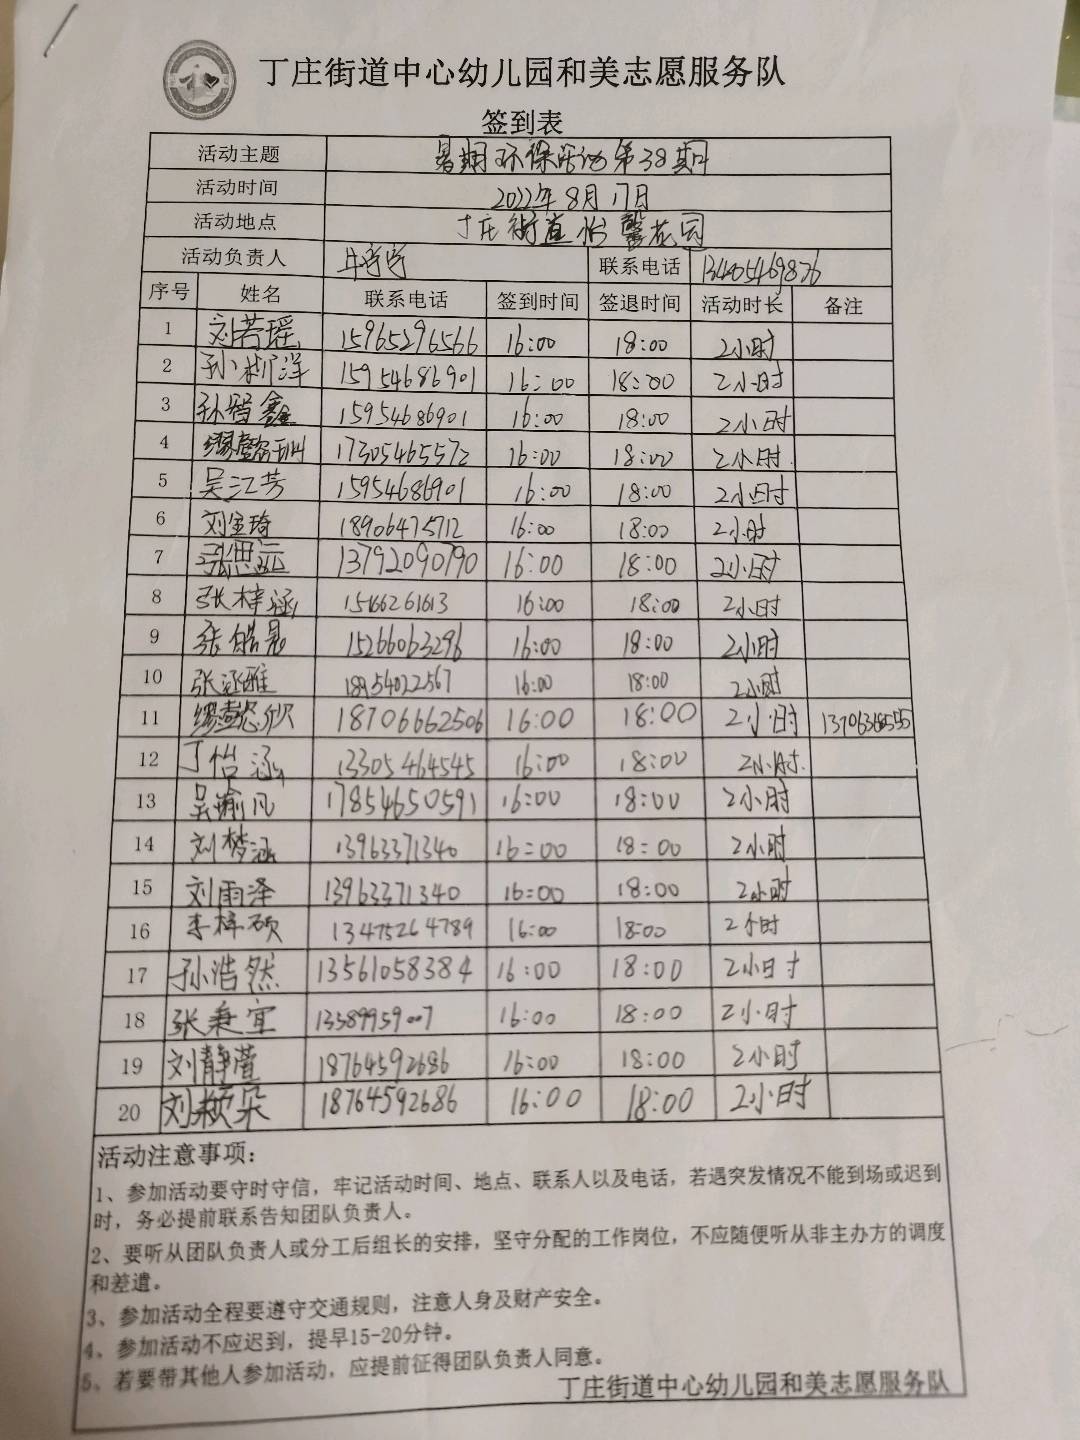 丁庄街道中心幼儿园和美志愿服务队
签到表
活动主题 暑期环保活动第38期
活动时间 2022年8月17日
活动地点 丁庄街道怡馨花园
活动负责人 联系电话 13405469876
序号 姓名 联系电话 签到时间 签退时间 活动时长 备注
1 刘若瑶 15965296566 16:00 18:00 2小时
2 孙彬洋 15954686901 16:00 18:00 2小时
3 孙智鑫 15954686901 16:00 18:00 2小时
4 17305465572 16:00 18:00 2小时
5 吴江芳 15954686901 16:00 18:00 2小时
6 刘宝琦 18906475712 16:00 18:00 2小时
7 张思远 13792090790 16:00 18:00 2小时
8 张梓涵 15166261613 16:00 18:00 2小时
9 张皓晟 15266063296 16:00 18:00 2小时
10 张涵雅 18954022567 16:00 18:00 2小时
11 18706662506 16:00 18:00 2小时
12 丁怡涵 13305464545 16:00 18:00 2小时
13 吴瑜凡 17854650591 16:00 18:00 2小时
14 刘梦涵 13963371340 16:00 18:00 2小时
15 刘雨泽 13963371340 16:00 18:00 2小时
16 李梓硕 13475264789 16:00 18:00 2小时
17 孙浩然 13561058384 16:00 18:00 2小时
18 张秉宜 13589959007 16:00 18:00 2小时
19 刘静萱 18764592686 16:00 18:00 2小时
20 刘颖朵 18764592686 16:00 18:00 2小时
活动注意事项：
1、参加活动要守时守信，牢记活动时间、地点、联系人以及电话，若遇突发情况不能到场或迟到
时，务必提前联系告知团队负责人。
2、要听从团队负责人或分工后组长的安排，坚守分配的工作岗位，不应随便听从非主办方的调度
和差遣。
3、参加活动全程要遵守交通规则，注意人身及财产安全。
4、参加活动不应迟到，提早15-20分钟。
5、若要带其他人参加活动，应提前征得团队负责人同意。
丁庄街道中心幼儿园和美志愿服务队